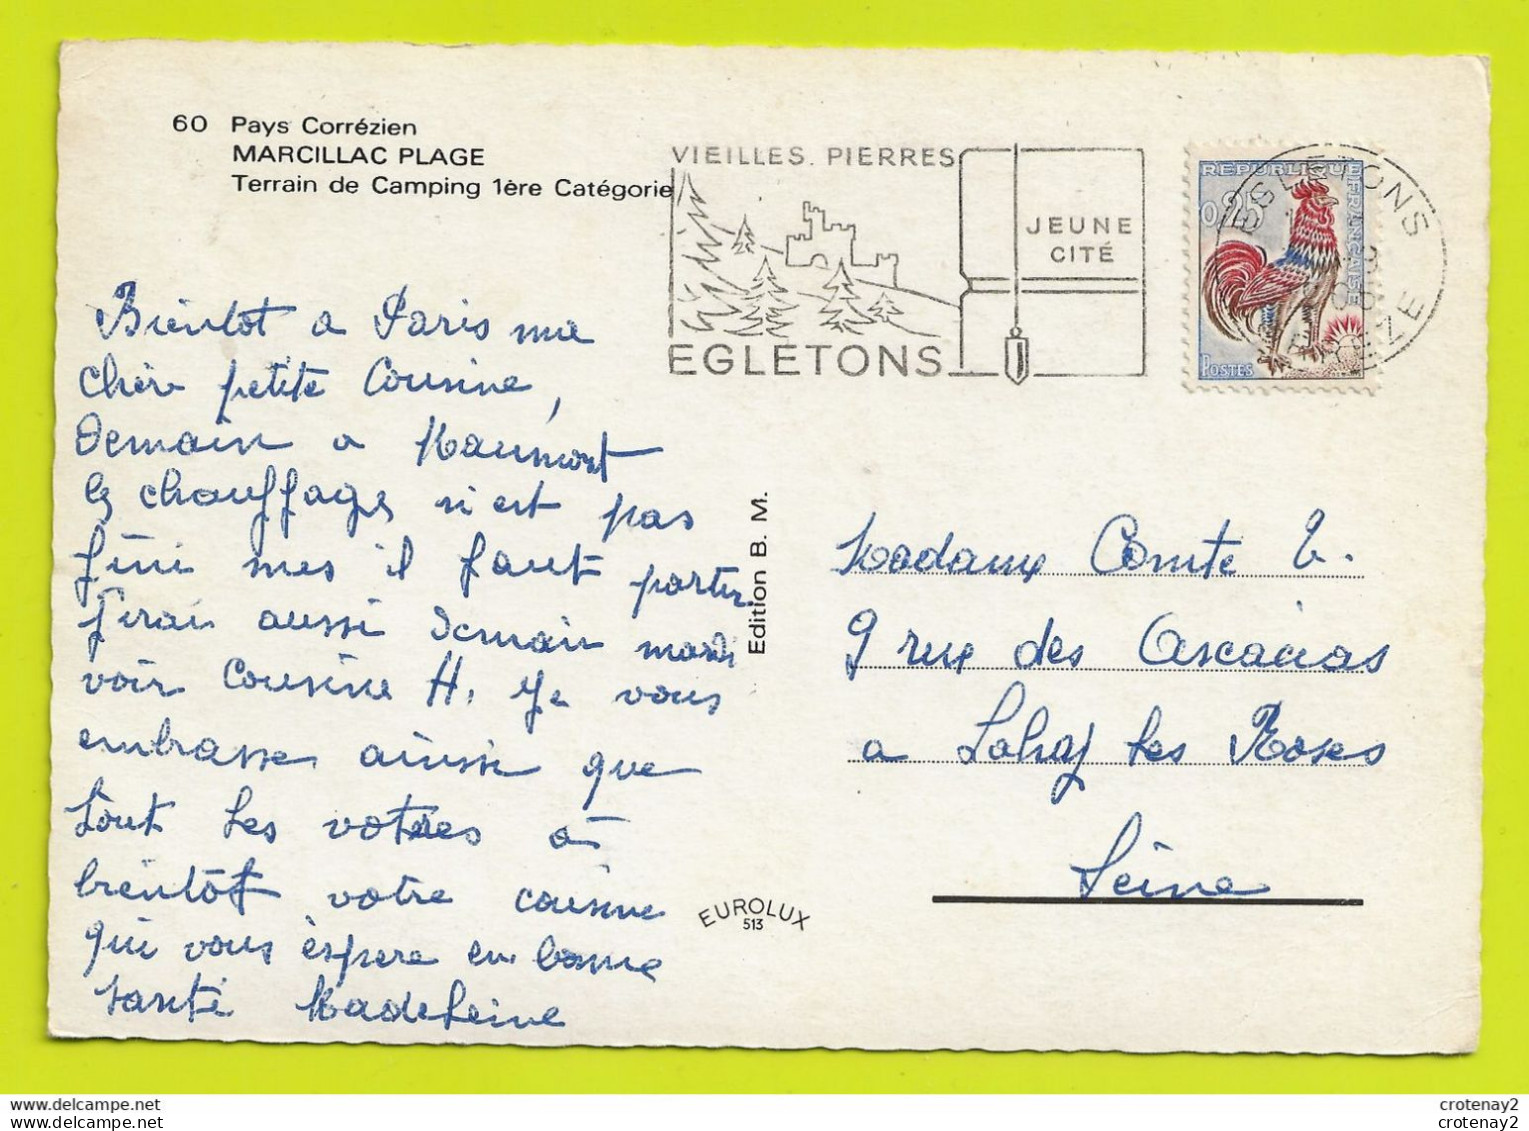 60 Pays Corrézien
MARCILLAC PLAGE
Terrain de Camping 1ère Catégorie
VIEILLES PIERRES
JEUNE
CITÉ
EGLETONS
EGLETONS
CORREZE
REPUBLIQUE FRANÇAISE
0,25
POSTES
Bientot a Paris ma
chère petite Cousine,
demain a Maumont
le chauffage n'est pas
fini mes il faut porter
ferai aussi demain mardi
voir Cousine H. Je vous
embrasse ainssi que
tout les votres a
bientôt votre cousine
qui vous èspere en bonne
santé Madeleine
Edition B. M.
EUROLUX
513
Madame Comte V.
9 rue des Ascacias
a Lahay les Roses
Seine
crotenay2
crotenay2
www.delcampe.net
www.delcampe.net